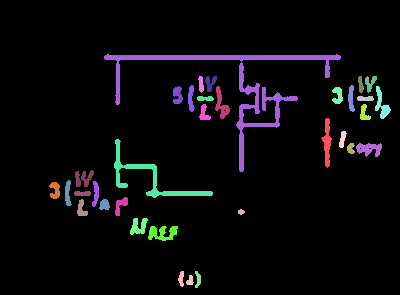 5 (W/L)p
3 (W/L)p
Icopy
3 (W/L)n
MREF